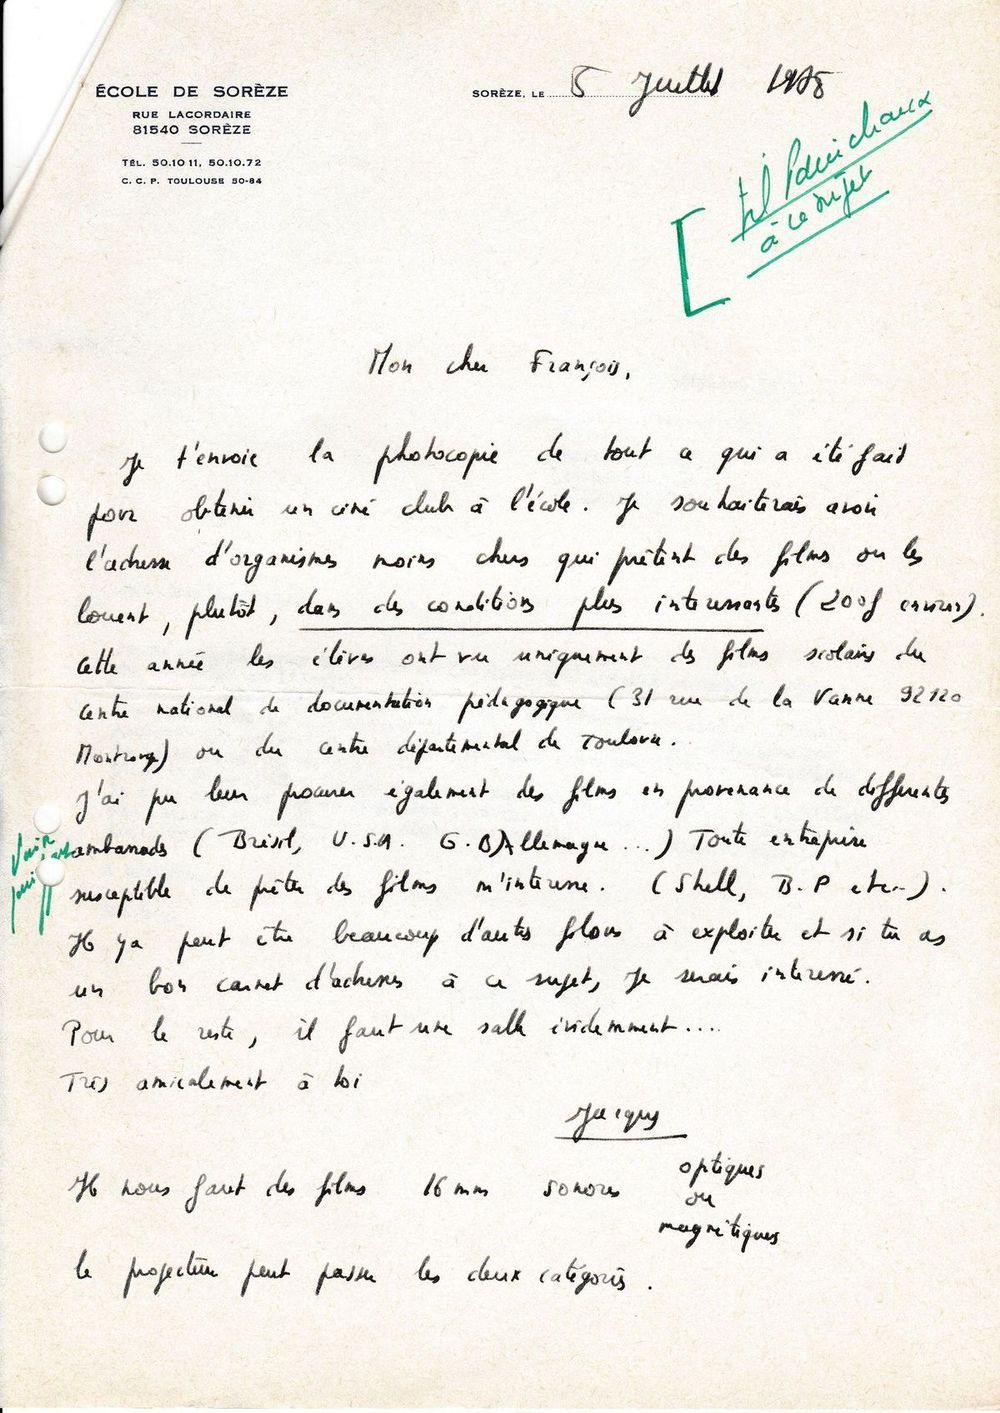 ÉCOLE DE SORÈZE
RUE LACORDAIRE
81540 SORÈZE
TÉL. 50.10 11, 50.10.72
C. C. P. TOULOUSE 50-84
SORÈZE, LE 5 Juillet 1978
tél
à ce sujet
Mon cher François,
Je t'envoie la photocopie de tout ce qui a été fait
pour obtenir un ciné club à l'école. Je souhaiterais avoir
l'adresse d'organismes moins chers qui prêtent des films ou les
louent, plutôt, dans des conditions plus intéressantes (200f environ).
Cette année les élèves ont vu uniquement des films scolaires du
centre national de documentation pédagogique (31 rue de la Vanne 92120
Montrouge) ou du centre départemental de Toulouse.
J'ai pu leur procurer également des films en provenance de différentes
ambassades (Brésil, U.S.A. G.B Allemagne ...) Toute entreprise
susceptible de prêter des films m'intéresse. (Shell, B.P etc...).
Il y a peut être beaucoup d'autres filons à exploiter et si tu as
un bon carnet d'adresses à ce sujet, je serais intéressé.
Pour le reste, il faut une salle évidemment....
Très amicalement à toi
Jacques
Il nous faut des films 16 mm sonores optiques
ou
magnétiques
le projecteur peut passer les deux catégories.